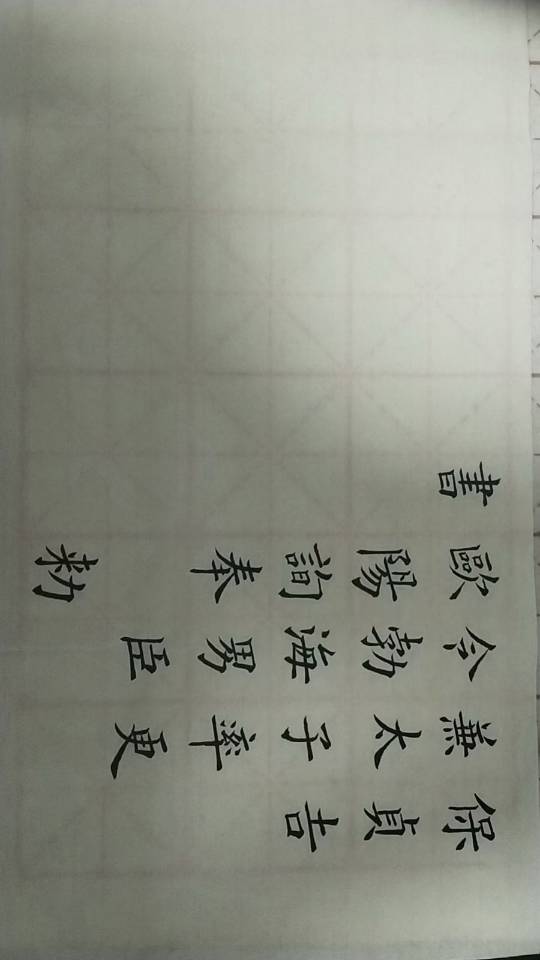 保貞吉
兼太子率更
令勃海男臣
歐陽詢奉勅
書